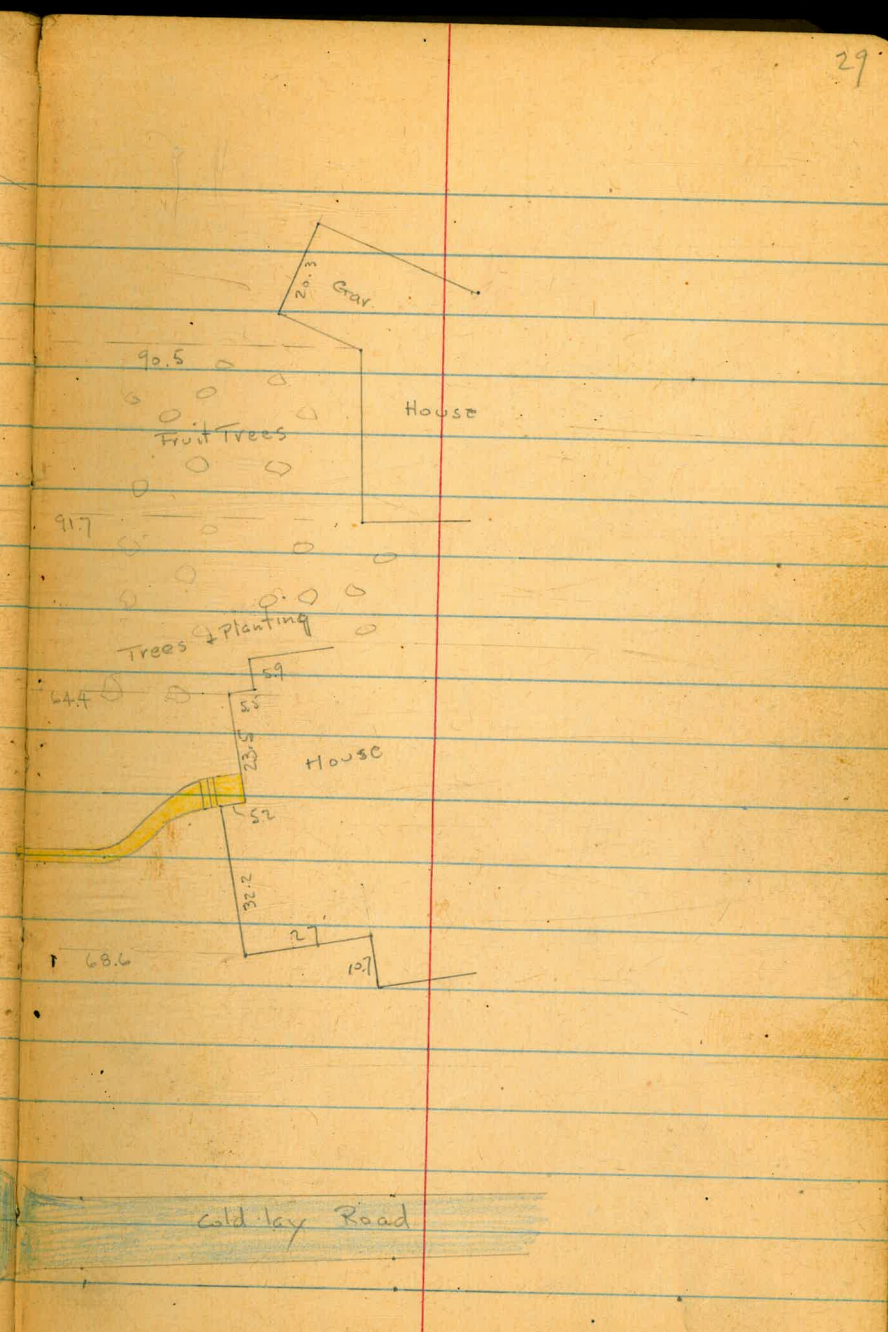 29
20.3
Gar.
90.5
House
Fruit Trees
91.7
Trees & Planting
5.9
64.4
5.5
23.5
House
5.2
32.2
27
10.7
68.6
Cold lay Road